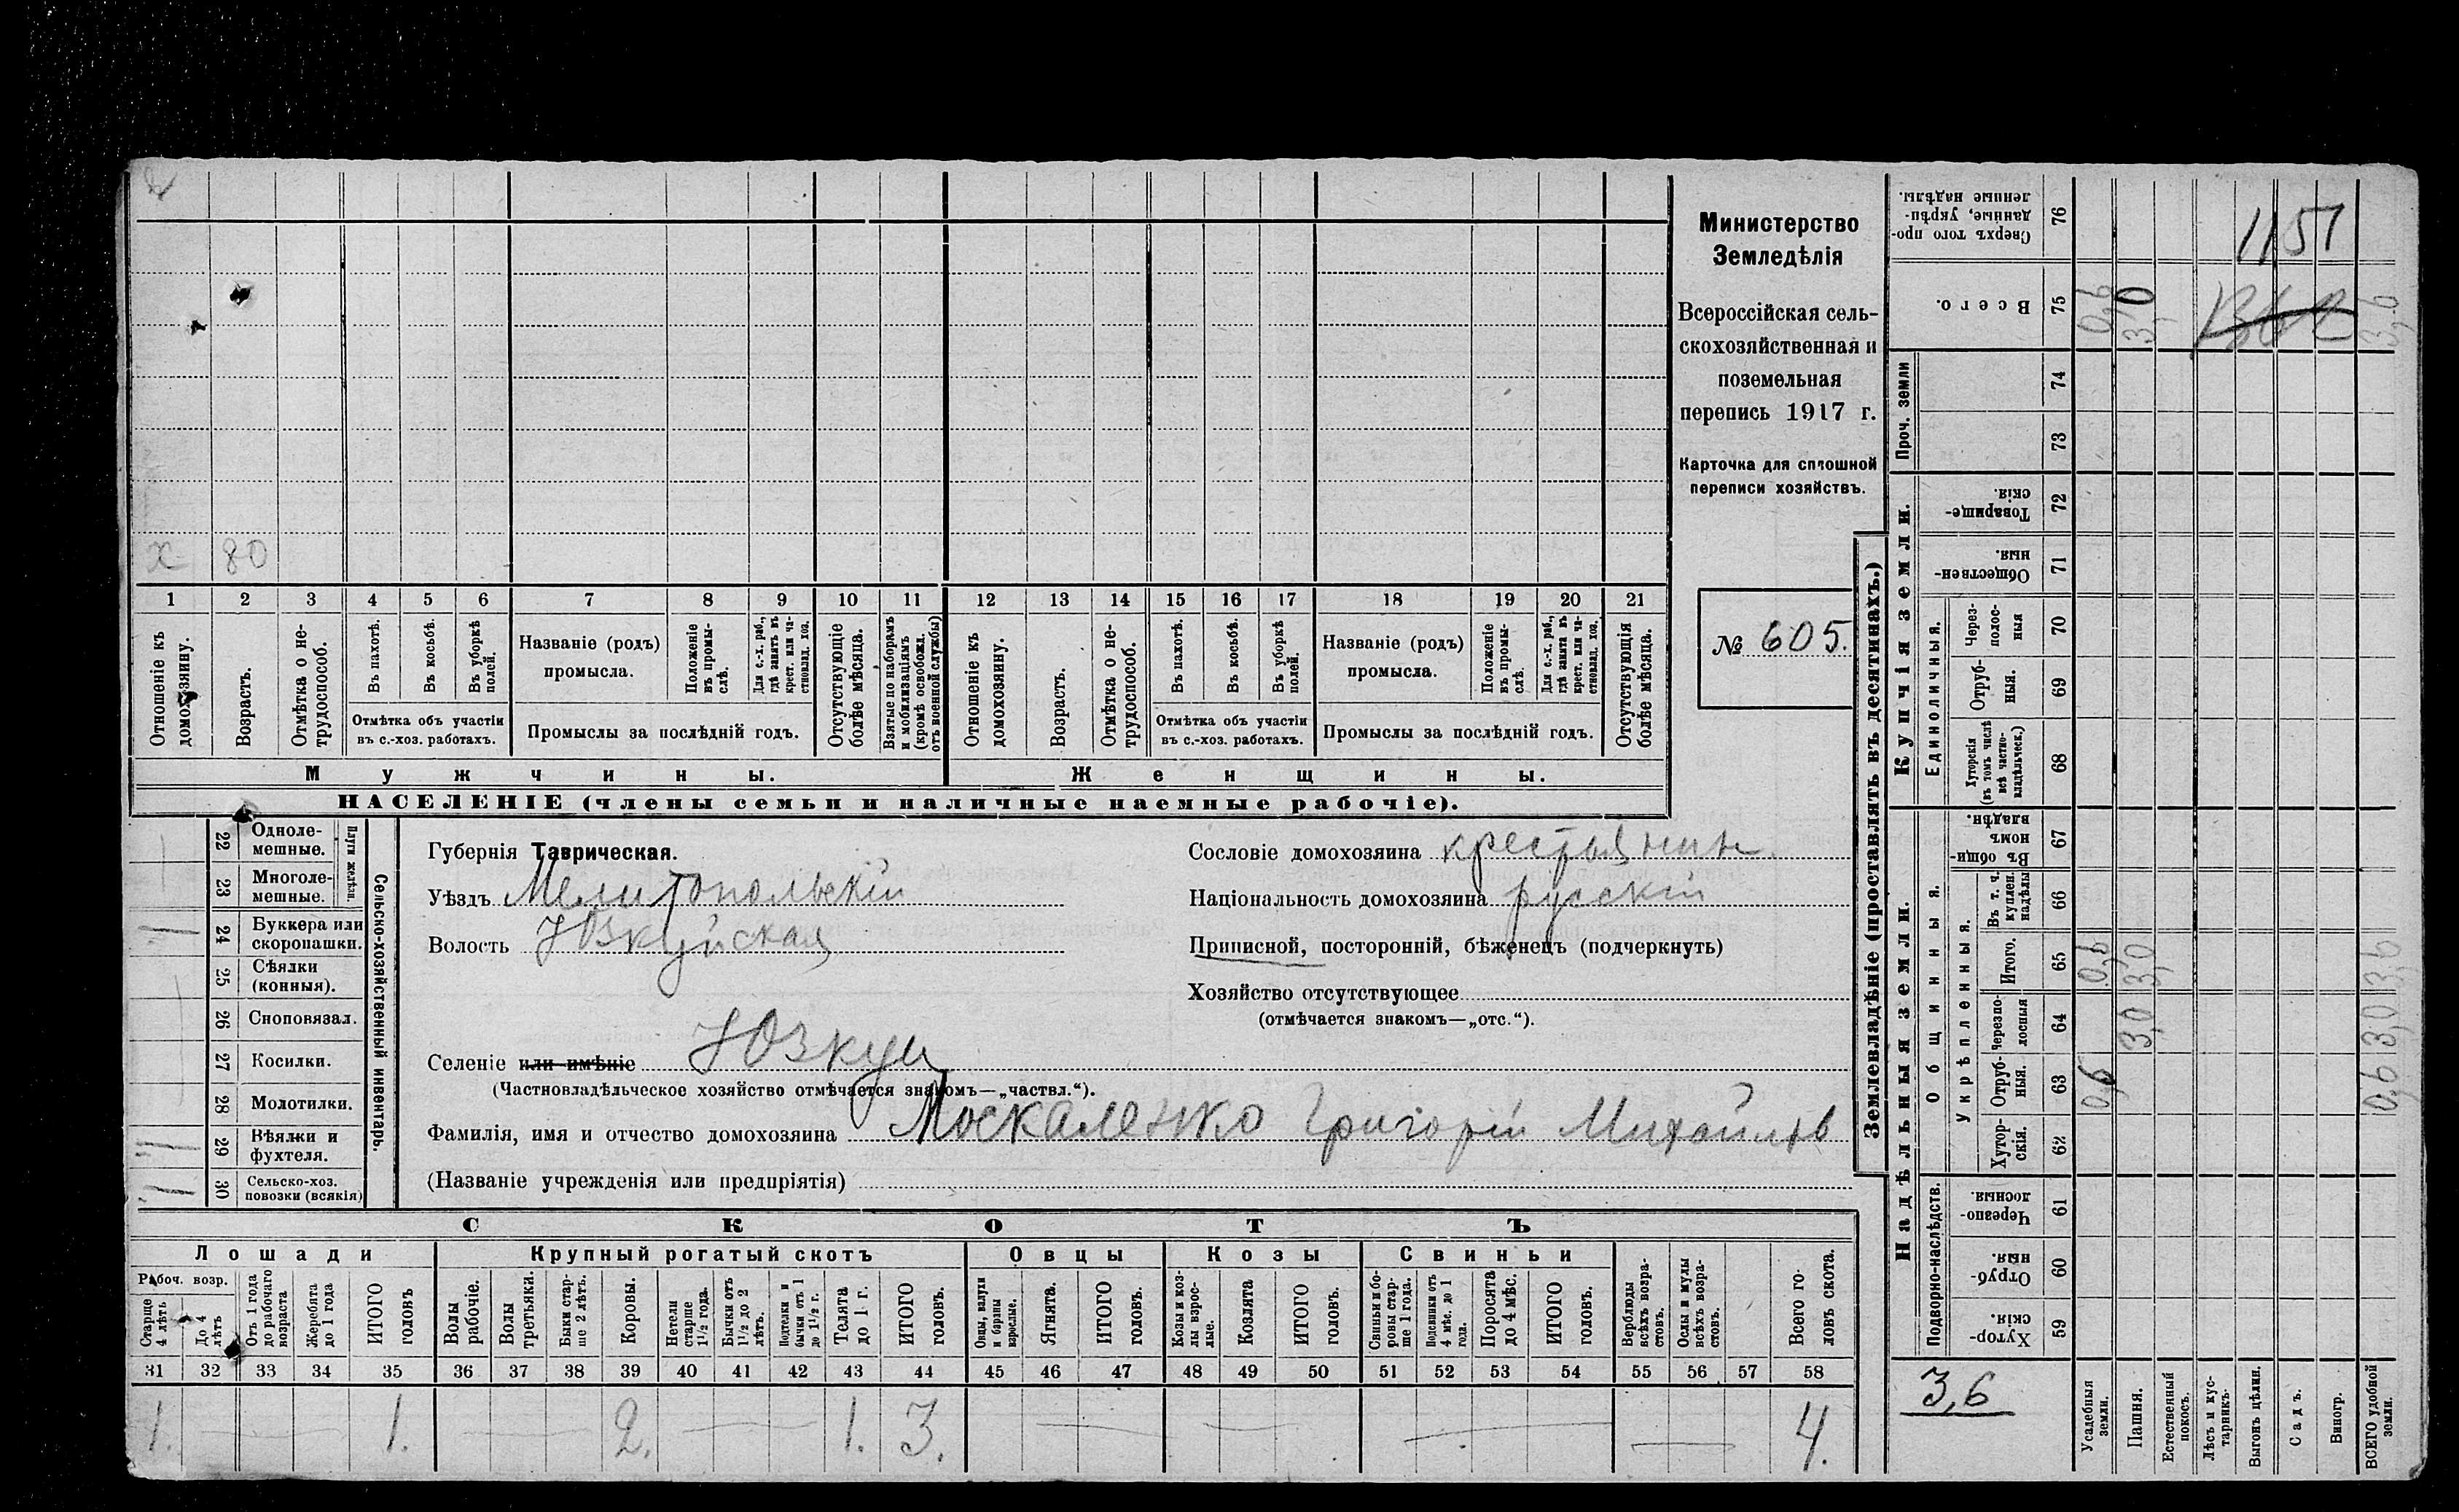 х 80
1 2 3 4 5 6 7 8 9 10 11 12 13 14 15 16 17 18 19 20 21
Отношеніе къ домохозяину.
Возрастъ.
Отмѣтка о не-
трудоспособ.
Въ пахотѣ.
Въ косьбѣ.
Въ уборкѣ полей.
Отмѣтка объ участіи
въ с.-хоз. работахъ.
Названіе (родъ)
промысла.
Положеніе въ промы-
слѣ.
Для с.-х. раб., гдѣ занятъ въ крест. или ча-
стновлад. хоз.
Промыслы за послѣдній годъ.
Отсутствующіе болѣе мѣсяца.
Взятые по наборамъ и мобилизаціямъ (кромѣ освобожд. отъ военной службы)
Отношеніе къ домохозяину.
Возрастъ.
Отмѣтка о не-
трудоспособ.
Въ пахотѣ.
Въ косьбѣ.
Въ уборкѣ полей.
Отмѣтка объ участіи
въ с.-хоз. работахъ.
Названіе (родъ)
промысла.
Положеніе въ промы-
слѣ.
Для с.-х. раб., гдѣ занятъ въ крест. или ча-
стновлад. хоз.
Промыслы за послѣдній годъ.
Отсутствующія болѣе мѣсяца.
Мужчины. Женщины.
НАСЕЛЕНІЕ (члены семьи и наличные наемные рабочіе).
Министерство
Земледѣлія
Всероссійская сель-
скохозяйственная и
поземельная
перепись 1917 г.
Карточка для сплошной
переписи хозяйствъ.
№ 605.
Сельско-хозяйственный инвентарь.
Плуги желѣзн.
22 Одноле-
мешные.
23 Многоле-
мешные.
24 Буккера или
скоропашки.
25 Сѣялки
(конныя).
26 Сноповязал.
27 Косилки.
28 Молотилки.
29 Вѣялки и
фухтеля.
30 Сельско-хоз.
повозки (всякія)
Губернія Таврическая.
Уѣздъ Мелитопольскій
Волость Юзкуйская
Селеніе или имѣніе Юзкуи
(Частновладѣльческое хозяйство отмѣчается знакомъ—„частвл.“).
Фамилія, имя и отчество домохозяина Москаленко Григорій Михайловъ
(Названіе учрежденія или предпріятія)
Сословіе домохозяина крестьянинъ.
Національность домохозяина русскій
Приписной, посторонній, бѣженецъ (подчеркнуть)
Хозяйство отсутствующее
(отмѣчается знакомъ—„отс.“).
СКОТЪ
Лошади Крупный рогатый скотъ Овцы Козы Свиньи
Рабоч. возр.
Старше 4 лѣтъ
До 4 лѣтъ
Отъ 1 года до рабочаго возраста
Жеребята до 1 года
ИТОГО головъ
Волы рабочіе.
Волы третьяки.
Быки стар-
ше 2 лѣтъ.
Коровы.
Нетели старше 1½ года.
Бычки отъ 1½ до 2 лѣтъ.
Подтелки и бычки отъ 1 до 1½ г.
Телята до 1 г.
ИТОГО головъ.
Овцы, валухи и бараны взрослые.
Ягнята.
ИТОГО головъ.
Козы и коз-
лы взрос-
лые.
Козлята
ИТОГО головъ.
Свиньи и бо-
ровы стар-
ше 1 года.
Подсвинки отъ 4 мѣс. до 1 года.
Поросята до 4 мѣс.
ИТОГО головъ.
Верблюды всѣхъ возра-
стовъ.
Ослы и мулы всѣхъ возра-
стовъ.
Всего го-
ловъ скота.
31 32 33 34 35 36 37 38 39 40 41 42 43 44 45 46 47 48 49 50 51 52 53 54 55 56 57 58
1. 1. 2. 1. 3. 4.
Землевладѣніе (проставлять въ десятинахъ.)
Купчія земли.
Надѣльныя земли.
Сверхъ того про-
данные, укрѣп-
ленные надѣлы.
76
11 51
Всего.
75
0,6 3,0 3,6
Проч. земли
74
73
Товарище-
скія.
72
Обществен-
ныя.
71
Единоличныя.
Через-
полос-
ныя
70
Отруб-
ныя.
69
Хуторскія (въ томъ числѣ всѣ частно-
владѣльческ.)
68
Общинныя.
Въ общи-
номъ
владѣн.
67
Укрѣпленныя.
Въ т. ч. куплен. надѣлы
66
Итого.
65
0,6 3,0 3,6
Черезпо-
лосныя
64
3,0 3,0
Отруб-
ныя.
63
0,6 0,6
Хутор-
скія.
62
Подворно-наслѣдств.
Черезпо-
лосныя.
61
Отруб-
ныя.
60
Хутор-
скія.
59
3,6
Усадебныя земли.
Пашня.
Естественный покосъ.
Лѣсъ и кус-
тарникъ.
Выгонъ цѣлин.
Садъ.
Виногр.
ВСЕГО удобной земли.